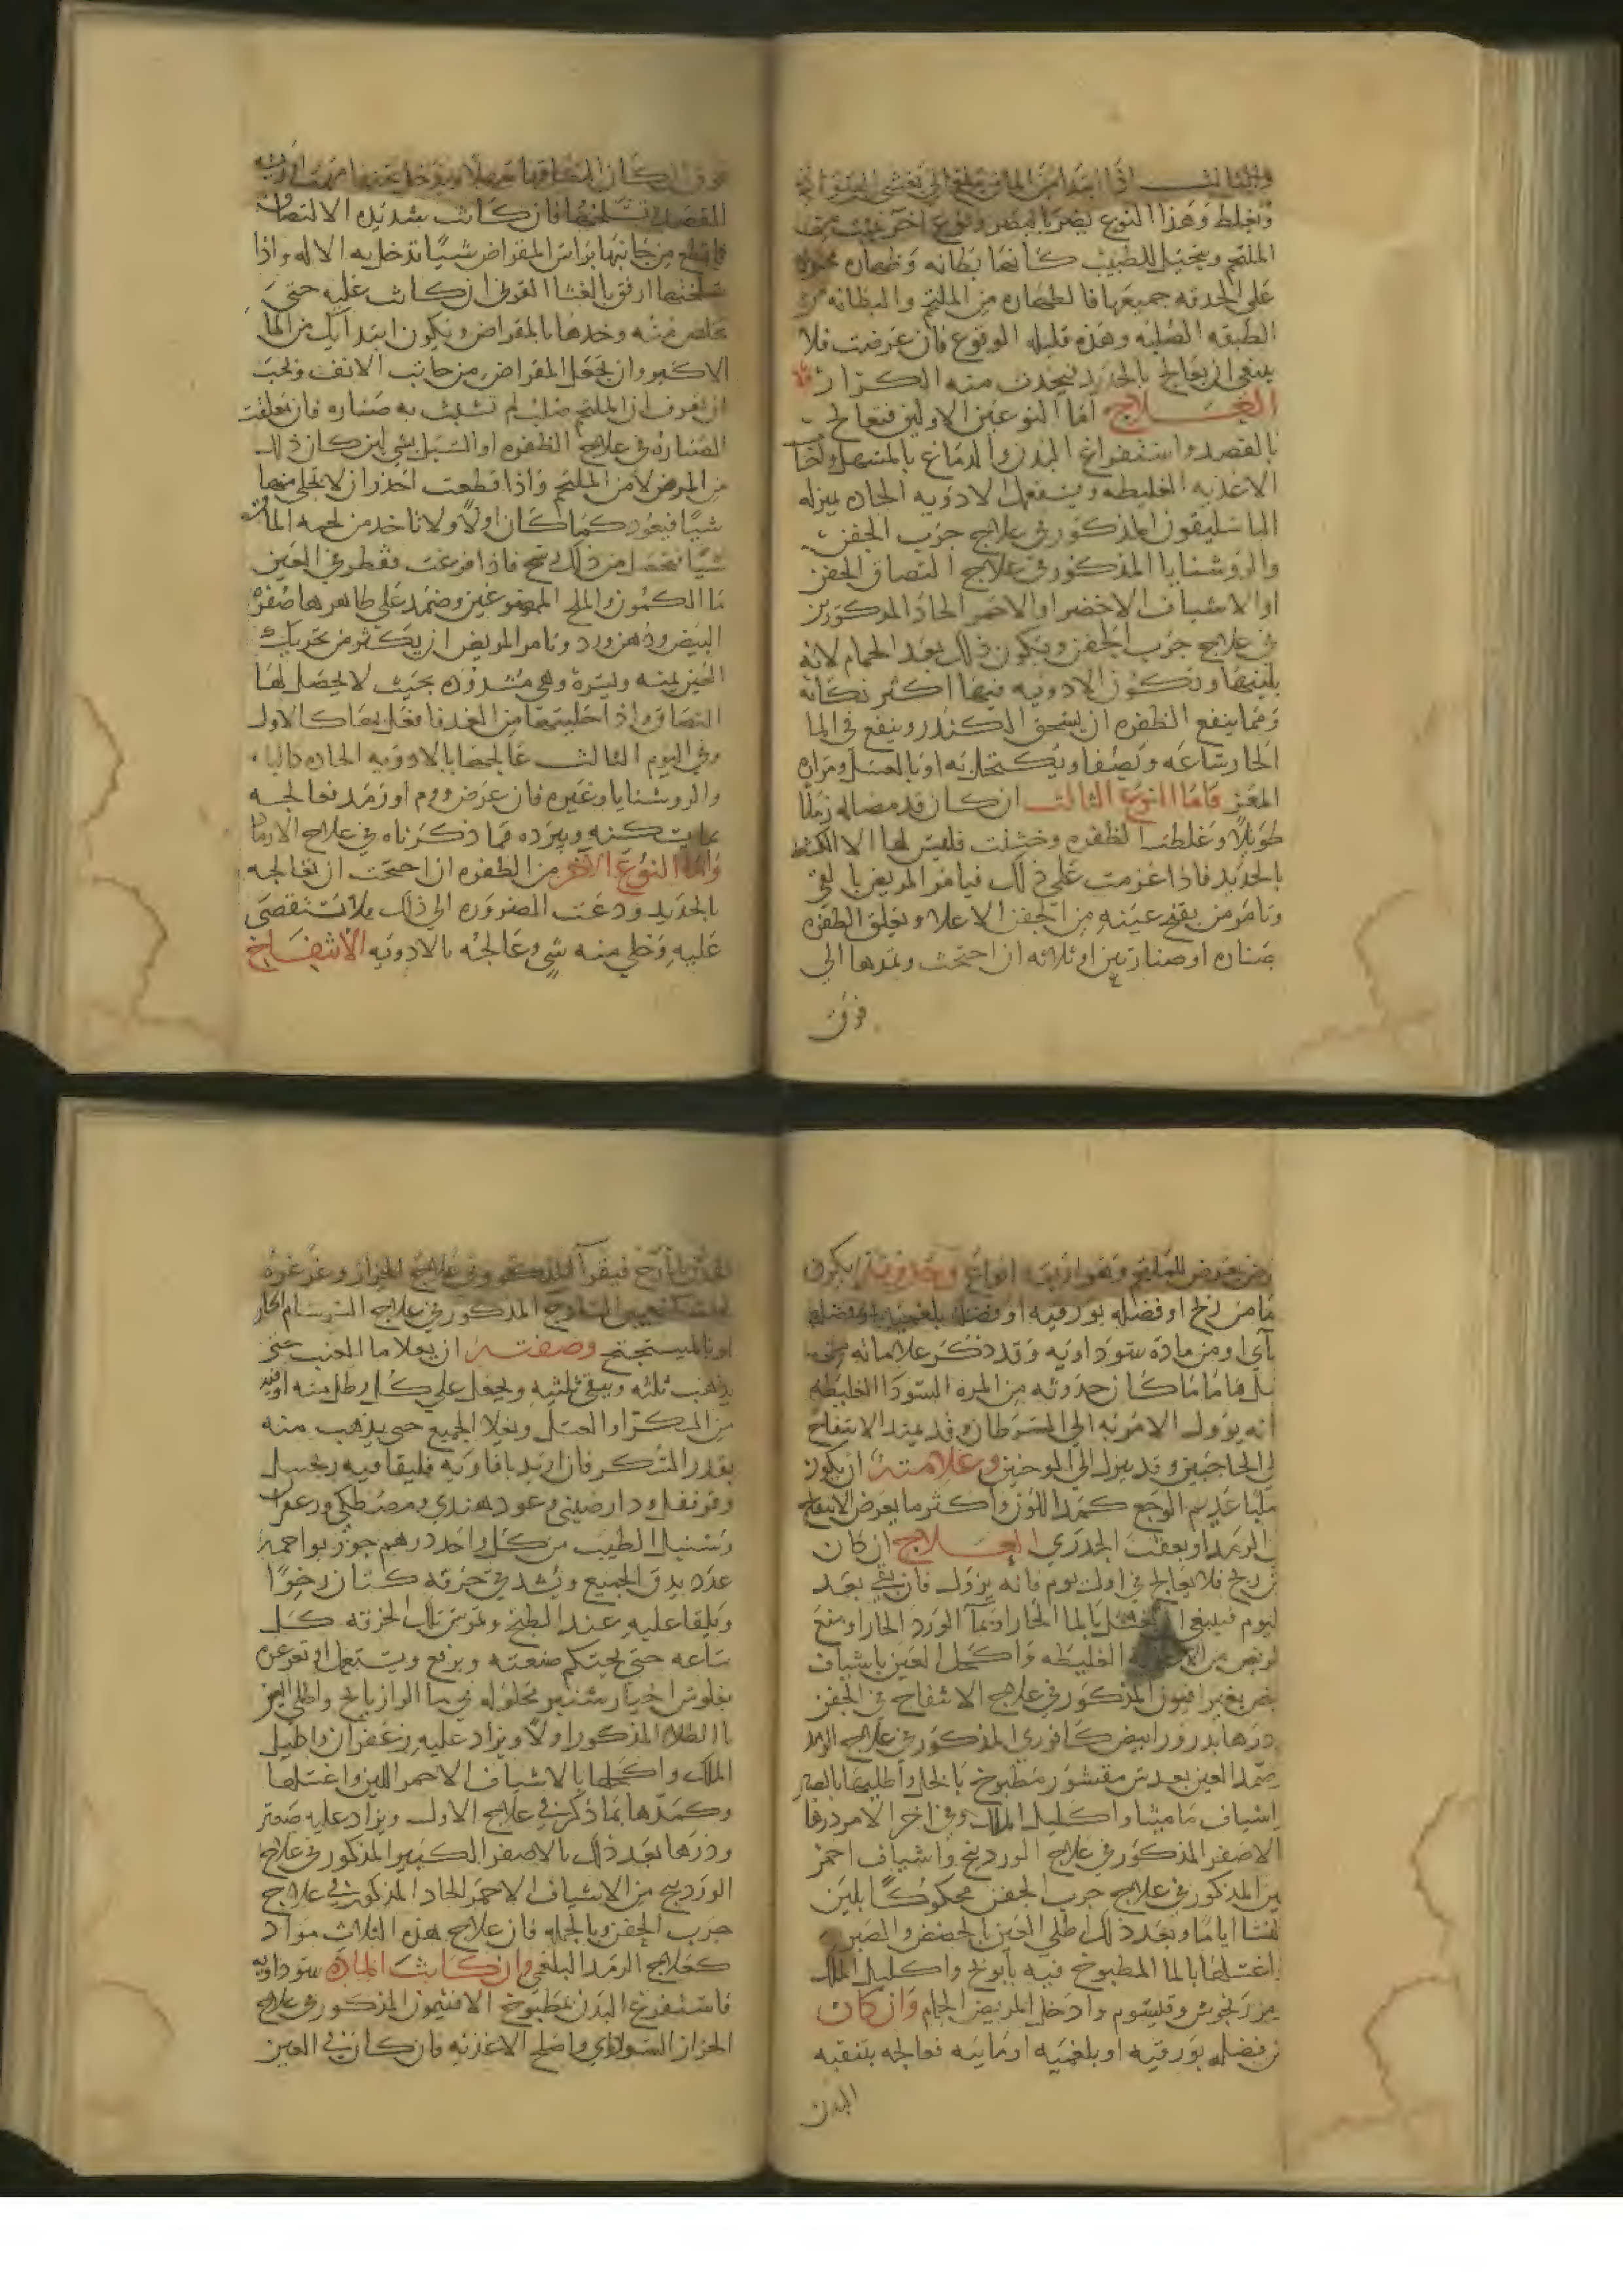 والثالث اذا ابتدا من الماق يبلغ الى تغشى الحدقة
وتغلظ وهذا النوع يضر بالبصر ونوع اخر غيت
الملتحم ويتخيل للطبيب كانها بطانه وظهاره
على الحدقه جميعها فالظهاره من الملتحم والبطانه من
الطبقه الصلبه وهذه قليله الوقوع فان عرضت فلا
ينبغي ان تعالج بالحديد فيحدث منه الكزاز
العلاج اما النوعين الاولين فتعالج
بالفصد واستفراغ البدن والدماغ بالمسهل
الاغذيه الغليظه ويستعمل الادويه الحاده بمنزله
الباسليقون المذكور في علاج جرب الجفن
والروشنايا المذكور في علاج التصاق الجفن
او الاشياف الاخضر او الاحمر الحاد المذكورين
في علاج جرب الجفن ويكون ذلك بعد الحمام لانه
يلينها وتكون الادويه فيها اكثر نكايه
ومما ينفع الظفره ان يسحق الكندر وينقع في الما
الحار ساعه ويصفا ويكتحل به او بالعسل ومراره
المعز فاما النوع الثالث ان كان قد مضا له زمانا
طويلا وغلظت الظفره وخشنت فليس لها الا الكشط
بالحديد فاذا عزمت على ذلك فيامر المريض بالقي
وتامر من يفتح عينه من الجفن الاعلا وتعلق الظفره
صناره او صنارتين او ثلاثه ان احتجت وتمدها الى
فوق
فوق
القصد تسلخها فان كانت شديده الالتصاق
فاقطع من جانبها براس المقراض شيا تدخل به الاله واذا
سلختها ارفق بالغشا القرني ان كانت عليه حتى
تخلص منه وخدها بالمقراض ويكون ابتدايك من الماق
الاكبر وان تجعل المقراض من جانب الانف ويجب
ان تعرف ان الملتحم صلب لم تشبث به صناره فان تعلقت
الصناره في علاج الظفره او السبل بشي لين كان ذلك
من المرض لا من الملتحم واذا قطعت احذر ان لا تخلي منها
شيا فيعود كما كان اولا ولا تاخد من لحمه الماق
شيا فتحصل من ذلك فاذا فرغت فقطر في العين
ما الكمون والملح الممضوغين وضمد على ظاهرها صفرة
البيض ودهن ورد وتامر المريض ان يكثر من تحريك
العين يمنه ويسره وهي مشدوده بحيث لا يحصل لها
التصاق واذا حليتها من الغد فافعل بها كالاول
وفي اليوم الثالث عالجها بالادويه الحاده
والروشنايا وغيره فان عرض ورم او رمد فعالجه
بما يسكنه ويبرده مما ذكرناه في علاج الارماد
واما النوع الاخر من الظفره ان احتجت ان تعالجه
بالحديد ودعت الضروره الى ذلك فلا تستقصي
عليه وخلي منه شي وعالجه بالادويه الانتفاخ
مرض يعرض للملتحم وهو اربعه انواع
اما من ريح او فضله بورقيه او فضله بلغميه
مايي او من ماده سوداويه وقد ذكر علاماته
كان حدوثه من المره السودا الغليظه
انه يوول الامر به الى السرطان وقد يمتد الانتفاخ
الى الحاجبين وقد ينزل الى الوجنتين وعلامته ان يكون
صلبا عديم الوجع كمد اللون واكثر ما يعرض الانتفاخ
في الرمد او بعقب الجدري العلاج ان كان
من ريح فلا يعالج في اول يوم فانه يزول فان بقي بعد
اليوم فينبغي ان تغسل بالما الحار او بما الورد الحار او منع
المريض من الاغذيه الغليظه واكحل العين باشياف
المذكور في علاج الانتفاخ في الجفن
ودرها بدرور ابيض كافوري المذكور في علاج الرمد
وضمد العين بعدس مقشور مطبوخ بالخل واطليها بالصبر
واشياف ماميثا واكليل الملك وفي اخر الامر درها
بالاصفر المذكور في علاج الوردينج واشياف احمر
لين المذكور في علاج جرب الجفن محكوكا بلبن
النسا اياما وبعد ذلك اطلي العين بالحضض والصبر
واغسلها بالما المطبوخ فيه بابونج واكليل الملك
ومرزنجوش وقيصوم وادخل المريض الحمام وان كان
من فضله بورقيه او بلغميه او مائيه فعالجه بتنقيه
البدن
فيقرا المذكور في علاج الحزاز وغرغره
المذكور في علاج السرسام الحار
او بالميبختج وصفته ان يغلا ما العنب حتى
يذهب ثلثه ويبقى ثلثيه ويجعل على كل رطل منه اوقيه
من السكر او العسل ويغلا الجميع حتى يذهب منه
بقدر السكر فان اريد بافاويه فليلقا فيه زنجبيل
وقرنفل ودارصيني وعود هندي ومصطكي وزعفران
وسنبل الطيب من كل واحد درهم جوز بوا خمسه
عدد يدق الجميع ويشد في خرقه كتان رخوا
ويلقا عليه عند الطبخ وتمرس تلك الخرقه كل
ساعه حتى يحتكم صنعته ويرفع ويستعمل او تغرغره
بفلوس الخيارشنبر محلوله في ما الرازيانج واطلي العين
بالطلاء المذكور اولا ويزاد عليه زعفران واكليل
الملك واكحلها بالاشياف الاحمر اللين واغسلها
وكمدها بما ذكر في علاج الاول ويزاد عليه صعتر
ودرها بعد ذلك بالاصفر الكبير المذكور في علاج
الوردينج من الاشياف الاحمر الحاد المذكور في علاج
جرب الجفن وبالجمله فان علاج هذه الثلاث مواد
كعلاج الرمد البلغمي وان كانت الماده سوداويه
فاستفرغ البدن بمطبوخ الافتيمون المذكور في علاج
الحزاز السوداوي واصلح الاغذيه فان كان في العين